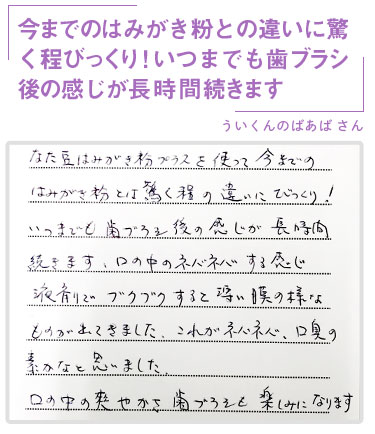 今までのはみがき粉との違いに驚
く程びっくり！いつまでも歯ブラシ
後の感じが長時間続きます
ういくんのばあば さん
なた豆はみがき粉プラスを使って今までの
はみがき粉とは驚く程の違いにびっくり！
いつまでも歯ブラシ後の感じが長時間
続きます、口の中のネバネバする感じ
液剤でブクブクすると薄い膜の様な
ものが出てきました、これがネバネバ、口臭の
素かなと思いました、
口の中の爽やかさ歯ブラシも楽しみになります